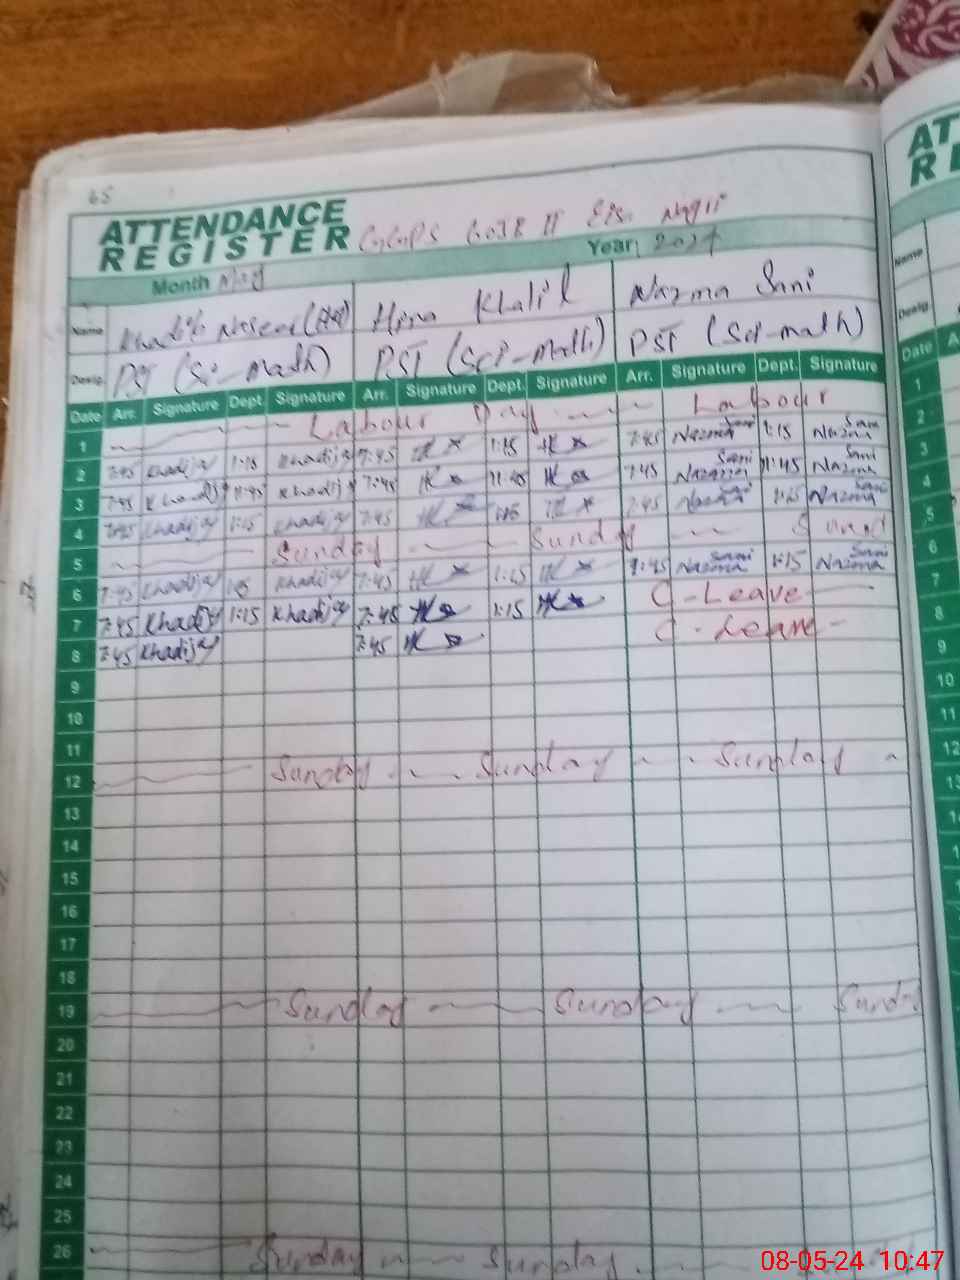 65
ATTENDANCE
REGISTER
Year 2024
Month May
Name Hina Khalil Nazma Sani
Desig. PST (Sci-math) PST (Sci-math) PST (Sci-math)
Date Arr. Signature Dept. Signature Arr. Signature Dept. Signature Arr. Signature Dept. Signature
1 Labour Day Labour
2 7:45 Khadija 1:15 Khadija 7:45 HK 1:15 HK 7:45 Nazma Sani 1:15 Nazma Sani
3 7:45 Khadija 11:45 Khadija 7:45 HK 11:45 HK 7:45 Nazma Sani 11:45 Nazma Sani
4 7:45 Khadija 1:15 Khadija 7:45 HK 1:15 HK 7:45 Nazma Sani 1:15 Nazma Sani
5 Sunday Sunday Sund
6 7:45 Khadija 1:15 Khadija 7:45 HK 1:15 HK 7:45 Nazma Sani 1:15 Nazma Sani
7 7:45 Khadija 1:15 Khadija 7:45 HK 1:15 HK C-Leave
8 7:45 Khadija 7:45 HK C-Leave
9
10
11
12 Sunday Sunday Sunday
13
14
15
16
17
18
19 Sunday Sunday Sunday
20
21
22
23
24
25
26 Sunday Sunday
AT
RE
Name
Desig.
Date A
1
2
3
4
5
6
7
8
9
10
11
12
13
08-05-24 10:47